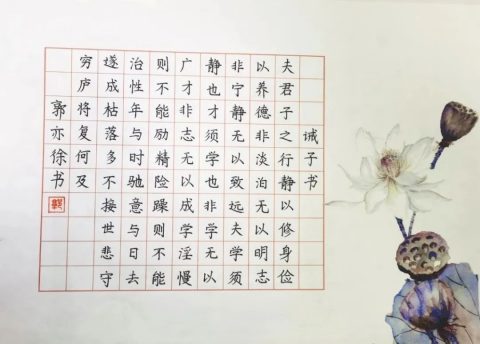 诫子书
夫君子之行静以修身俭
以养德非淡泊无以明志
非宁静无以致远夫学须
静也才须学也非学无以
广才非志无以成学淫慢
则不能励精险躁则不能
治性年与时驰意与日去
遂成枯落多不接世悲守
穷庐将复何及
郭亦徐书